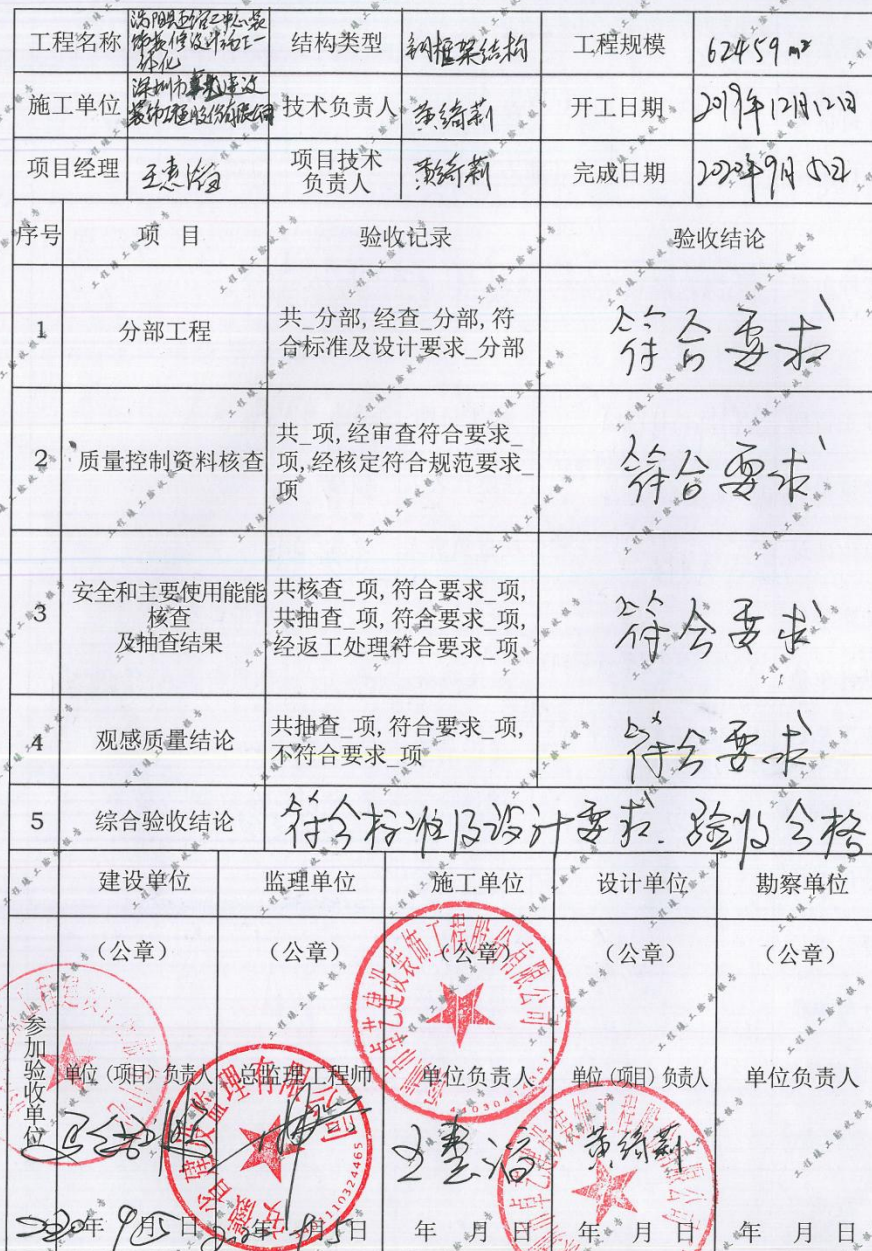 工程名称
结构类型 钢框架结构
工程规模 62459 m²
施工单位 深圳市卓艺建设
装饰工程股份有限公司
技术负责人 黄绮莉
开工日期 2019年12月12日
项目经理
项目技术
负责人 黄绮莉
完成日期 2020年9月5日
序号 项 目 验收记录 验收结论
1 分部工程
共_分部,经查_分部,符
合标准及设计要求_分部
符合要求
2 质量控制资料核查
共_项,经审查符合要求_
项,经核定符合规范要求_
项
符合要求
3
安全和主要使用能能
核查
及抽查结果
共核查_项,符合要求_项,
共抽查_项,符合要求_项,
经返工处理符合要求_项
符合要求
4 观感质量结论
共抽查_项,符合要求_项,
不符合要求_项
符合要求
5 综合验收结论 符合标准及设计要求.验收合格
参加验收单位
建设单位 监理单位 施工单位 设计单位 勘察单位
(公章) (公章) (公章) (公章) (公章)
单位(项目)负责人 总监理工程师 单位负责人 单位(项目)负责人 单位负责人
黄绮莉
2020年9月5日 年 月5日 年 月 日 年 月 日 年 月 日
深圳市卓艺建设装饰工程股份有限公司
工程竣工验收报告